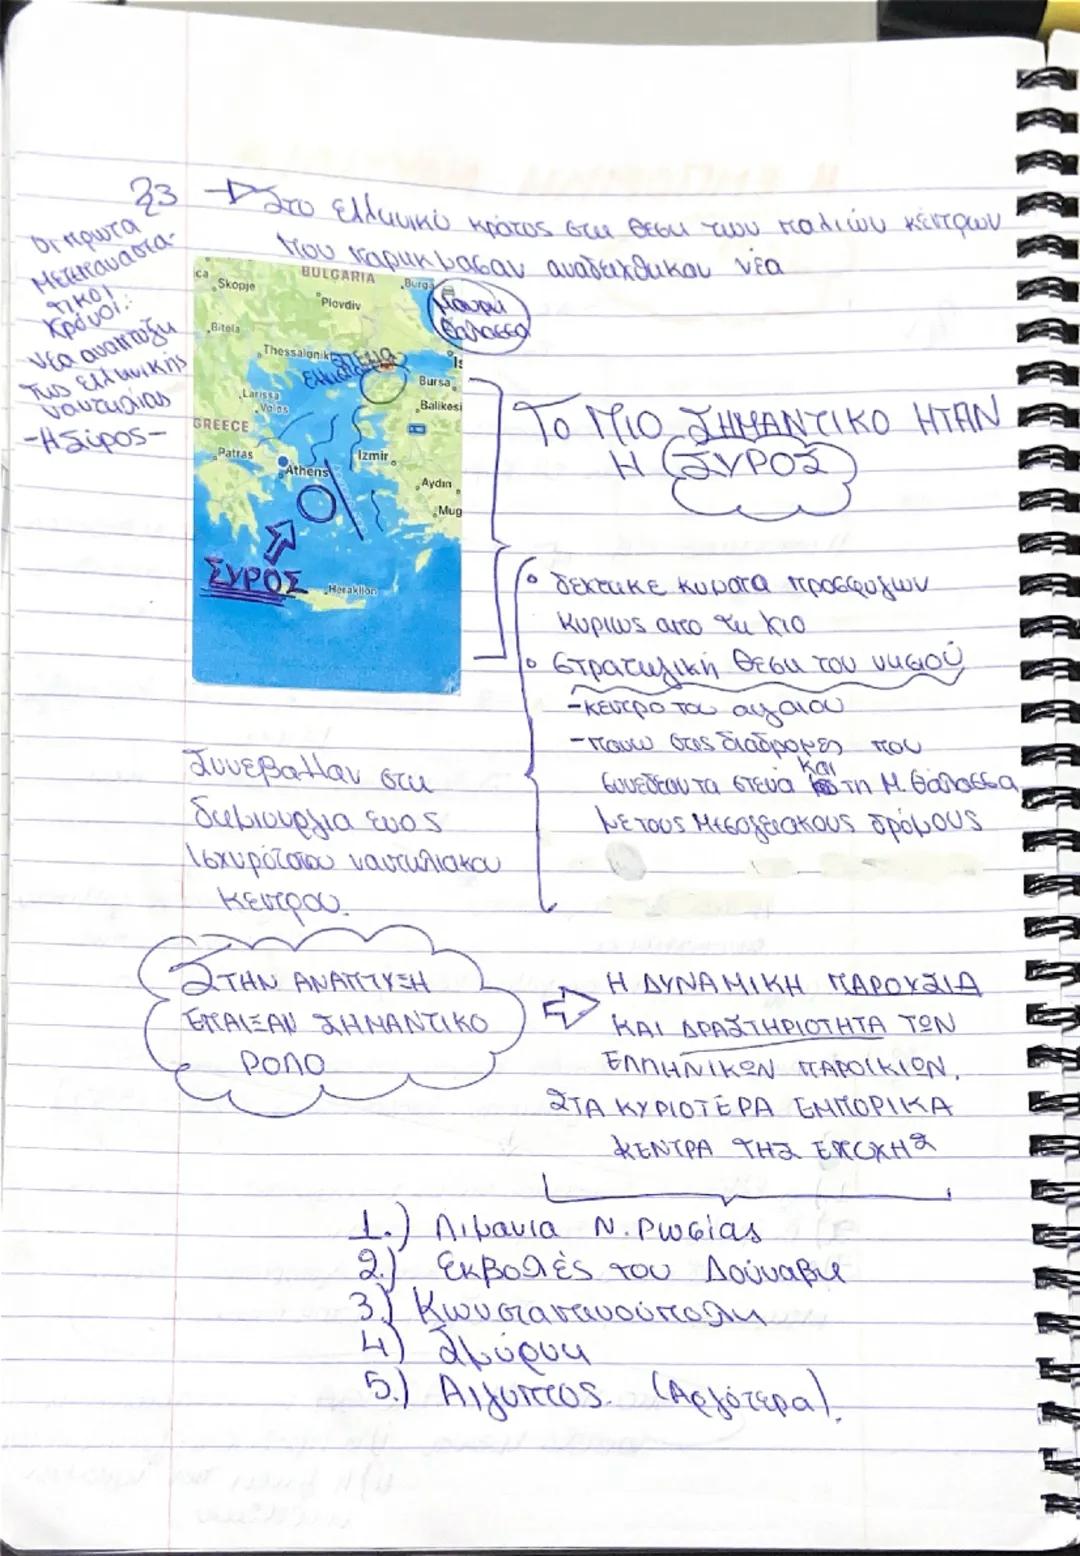 23
Οι πρωτα
Μετεπαναστα-
τικοι
Χρόνοι:
νέα αναπτυξη
της ελληνικής
ναυτιλιας
-Η Σύρος-
Στο ελληνικό κράτος στη θεση των παλιών κέντρων
που παρηκμασαν αναδειχθηκαν νέα
BULGARIA
Skopje
Burga
Plovdiv
Bitola
Μαυρη
θαλασσα
Thessaloniki
Στενα
Bursa
Larissa
Volos
Balikesi
GREECE
Patras
Izmir
Athens
Aydın
Mug
ΣΥΡΟΣ
Heraklion
ΤΟ ΠΙΟ ΣΗΜΑΝΤΙΚΟ ΗΤΑΝ
Η ΣΥΡΟΣ
• δεχτηκε κυματα προσφυγων
κυριως απο τη Χιο
• στρατηγική θεση του νησιού
-κεντρο του αιγαιου
-πανω στις διαδρομες που
συνεδεαν τα στενα και τη Μ. θαλασσα
με τους Μεσογειακους δρόμους
Συνεβαλλαν στη
δημιουργια ενος
Ισχυρότατου ναυτιλιακου
κεντρου.
ΣΤΗΝ ΑΝΑΠΤΥΞΗ
ΕΠΑΙΞΑΝ ΣΗΜΑΝΤΙΚΟ
ΡΟΛΟ
Η ΔΥΝΑΜΙΚΗ ΠΑΡΟΥΣΙΑ
ΚΑΙ ΔΡΑΣΤΗΡΙΟΤΗΤΑ ΤΩΝ
ΕΛΛΗΝΙΚΩΝ ΠΑΡΟΙΚΙΩΝ,
ΣΤΑ ΚΥΡΙΟΤΕΡΑ ΕΜΠΟΡΙΚΑ
ΚΕΝΤΡΑ ΤΗΣ ΕΠΟΧΗΣ
1.) Λιμανια Ν. Ρωσίας
2.) Εκβολές του Δούναβη
3.) Κωνσταντινούπολη
4) Σμύρνη
5.) Αιγυπτος. (Αργότερα).